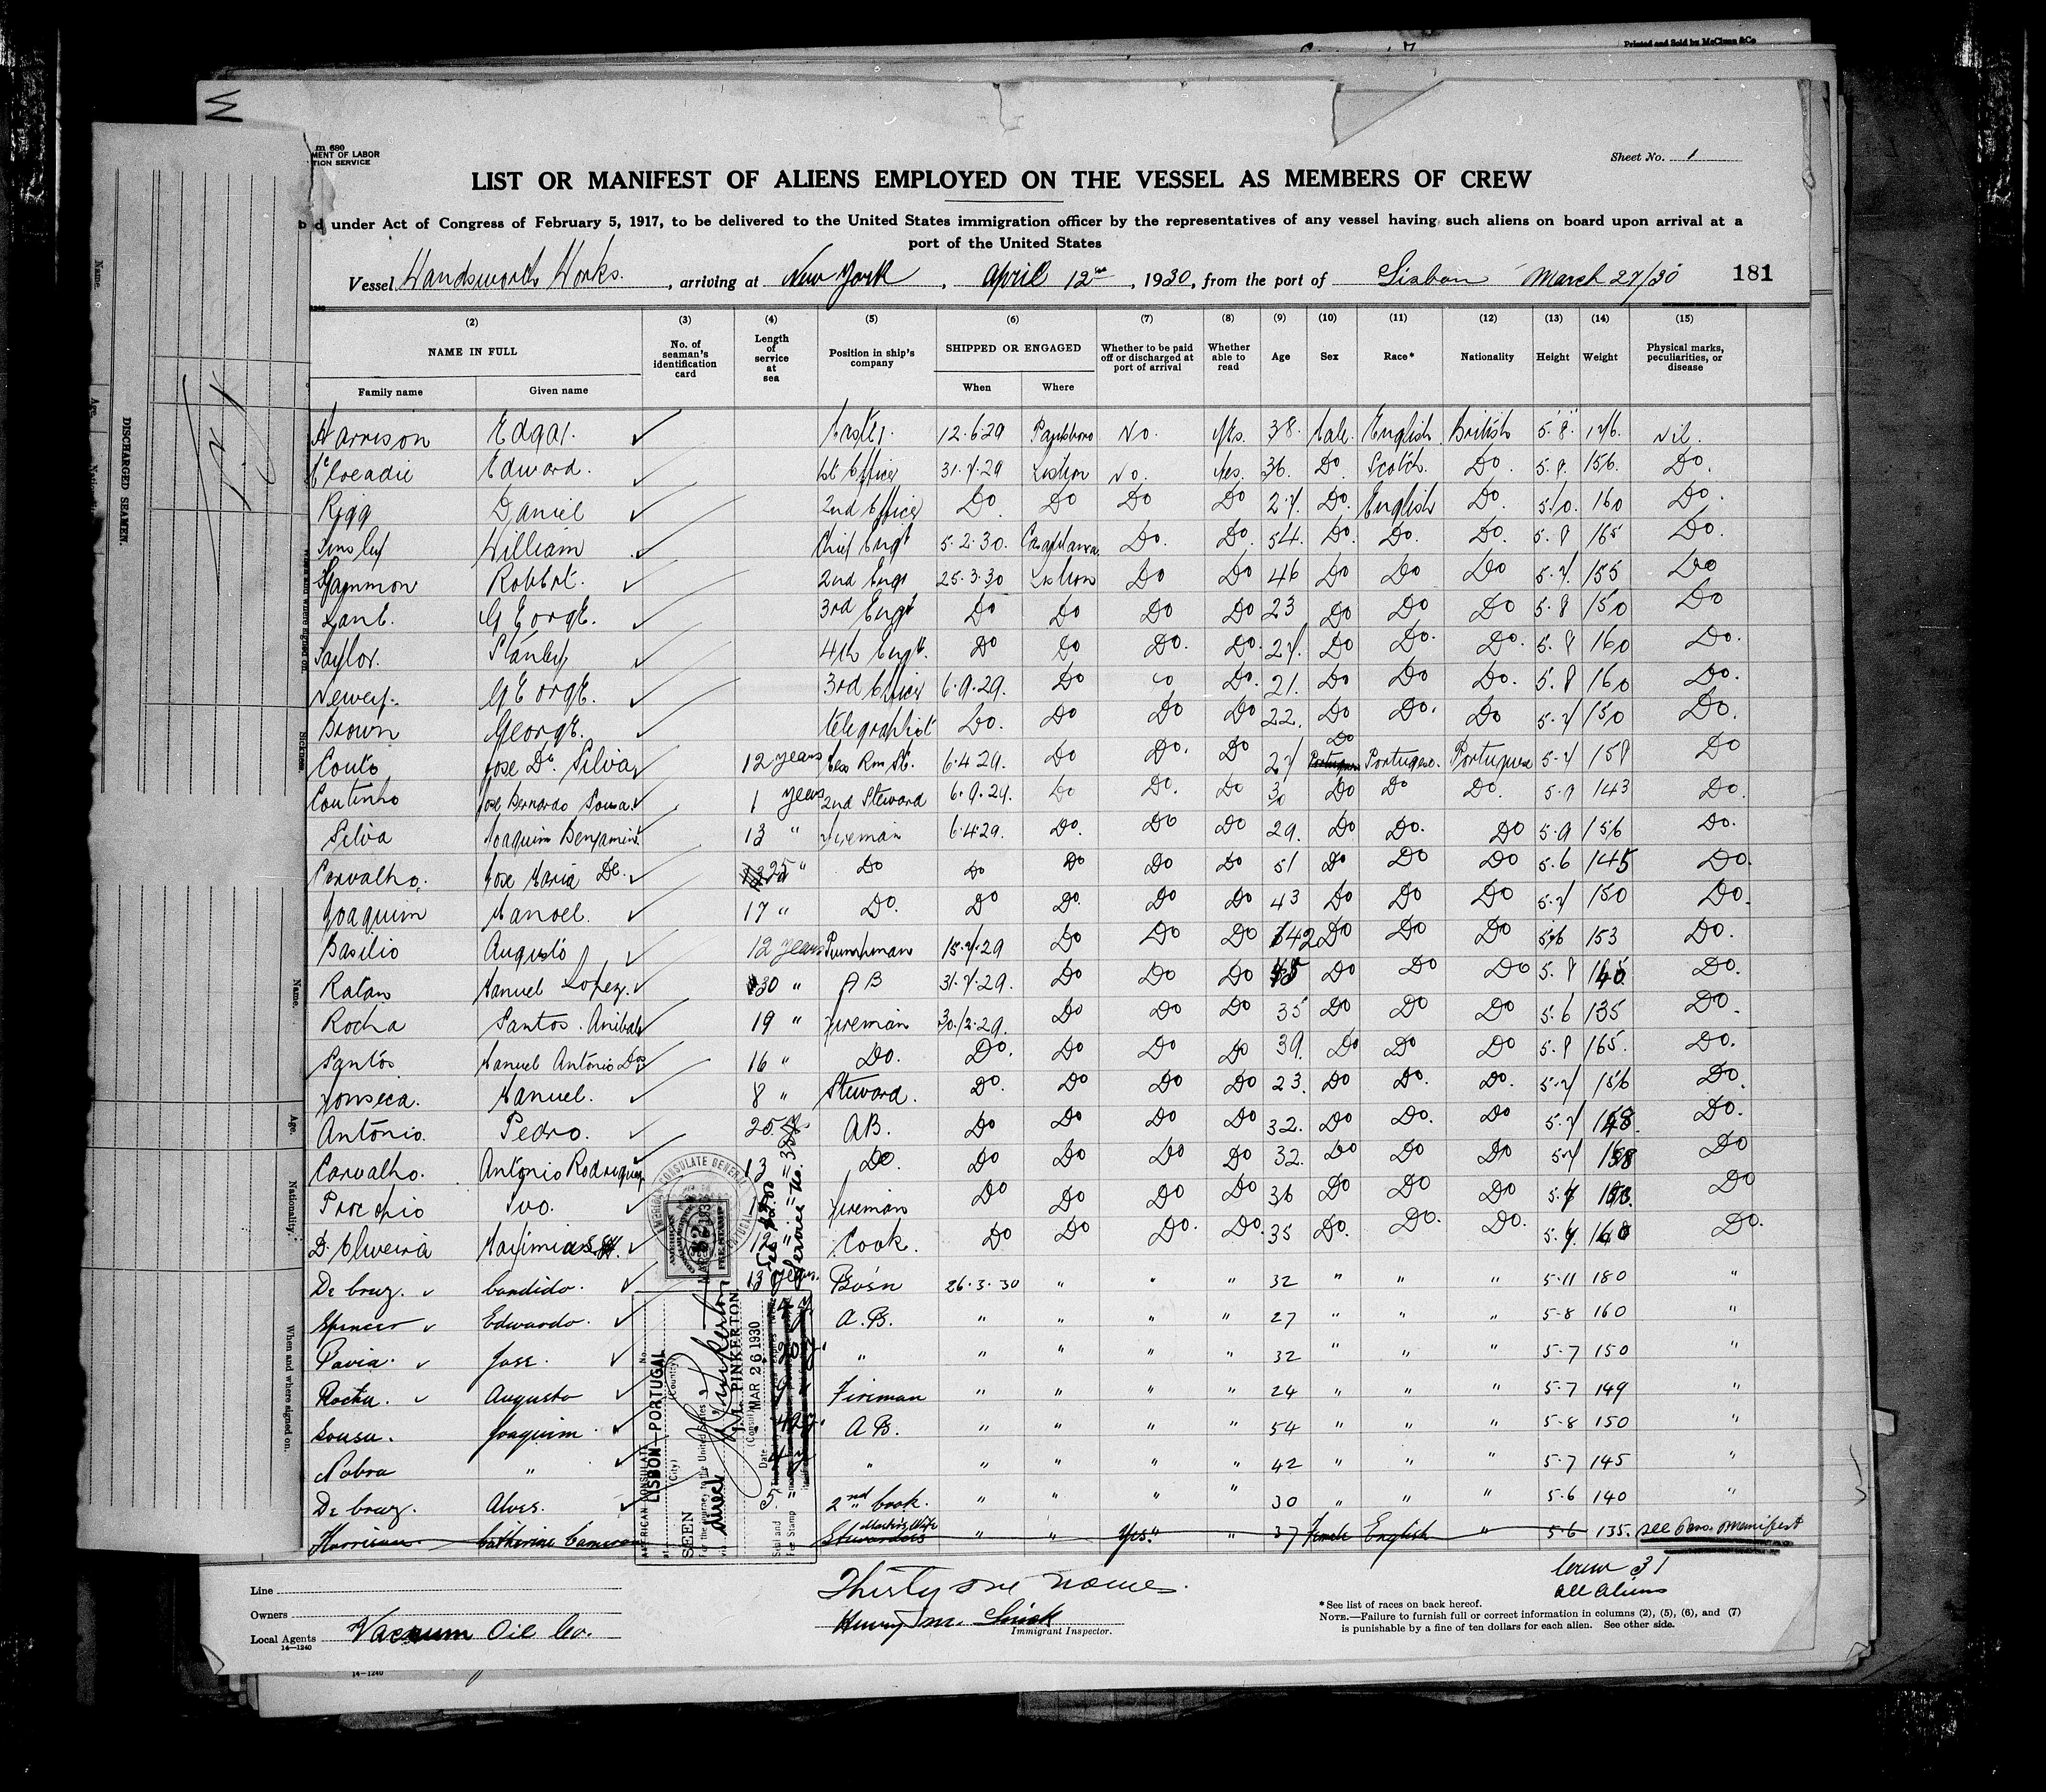 Printed and Sold by McClunn & Co
m 680
MENT OF LABOR
TION SERVICE
Sheet No. 1
LIST OR MANIFEST OF ALIENS EMPLOYED ON THE VESSEL AS MEMBERS OF CREW
d under Act of Congress of February 5, 1917, to be delivered to the United States immigration officer by the representatives of any vessel having such aliens on board upon arrival at a
port of the United States
Vessel Wandsworth Works. , arriving at New York , April 12 , 1930, from the port of Lisbon March 27/30 181
(2) (3) (4) (5) (6) (7) (8) (9) (10) (11) (12) (13) (14) (15)
NAME IN FULL No. of seaman's identification card Length of service at sea Position in ship's company SHIPPED OR ENGAGED Whether to be paid off or discharged at port of arrival Whether able to read Age Sex Race* Nationality Height Weight Physical marks, peculiarities, or disease
Family name Given name When Where
Harrison Edgar. Master. 12.6.29 No. Yes. 38. Male. English British 5.8. 176. Nil.
McCreadie Edward. 1st Officer 31.7.29 Lisbon No. Yes. 36. Do Scotch. Do. 5.8. 156. Do.
Rigg Daniel 2nd Officer Do. Do Do Do 27. Do. English Do. 5.10. 160 Do.
Tinsley William Chief Engr 5.2.30. Casablanca Do. Do. 54. Do. Do. Do. 5.8 165 Do.
Gammon Robert. 2nd Engr 25.3.30 Lisbon Do Do 46 Do Do Do 5.7. 155 Do
Lane. George. 3rd Engr Do Do Do Do 23 Do Do Do 5.8 150 Do
Taylor. Stanley 4th Engr. Do Do Do. Do. 27. Do Do. Do. 5.8 160 Do.
Newey. George. 3rd Officer 6.9.29. Do Do Do. 21. Do Do Do. 5.8 160 Do.
Brown George. Telegraphist Do. Do Do Do 22. Do Do. Do 5.7 150 Do.
Couto Jose Da Silva 12 years Mess Rm St. 6.4.29. Do Do. Do 27 Do Portugese. Portuguese 5.7 158 Do
Coutinho Jose Bernardo Sousa. 1 years 2nd Steward 6.9.29. Do Do. Do 30 Do Do Do. 5.9 143 Do.
Silva Joaquim Benjamin 13 " Fireman 6.4.29. Do. Do Do 29. Do Do. Do 5.9 156 Do.
Carvalho. Jose Maria De. 25 " Do Do Do Do Do 51 Do Do Do 5.6 145 Do.
Joaquim Manoel. 17 " Do. Do Do. Do Do 43 Do Do Do 5.7 150 Do.
Basilio Augusto 12 years Pumpman 15.7.29 Do Do Do 42 Do Do Do 5.6 153 Do.
Ratan Manuel Lopez. 30 " AB 31.7.29. Do Do Do 45 Do Do Do 5.8 Do.
Rocha Santos. Anibal 19 " Fireman 30.12.29. Do Do Do 35 Do Do Do 5.6 135 Do.
Santos Manuel Antonio Dos 16 " Do. Do. Do Do Do 39. Do Do Do 5.8 165. Do.
Fonseca. Manuel. 8 " Steward. Do. Do Do Do 23. Do Do. Do. 5.7 156 Do.
Antonio. Pedro. 25 AB. Do Do Do Do 32. Do Do. Do 5.7 Do.
Carvalho. Antonio Rodrigues 13 Do. Do Do Do Do 32. Do Do Do 5.7 158 Do
Procopio Ivo. Fireman Do Do Do Do 36 Do Do Do 5.7 Do
D. Oliveira 12 " Cook. Do Do Do. Do. 35 Do. Do. Do. 5.7. 160 Do.
De Cruz. Candido. 13 years. Bos'n 26.3.30 " " " 32 " " " 5.11 180 "
Spencer Edwardo. A.B. " " " " 27 " " " 5-8 160 "
Pavia. Jose. " " " " " 32 " " " 5-7 150 "
Rocha. Augusto Fireman " " " " 24 " " " 5-7 149 "
Sousa. Joaquim A.B. " " " " 54 " " " 5-8 150 "
Nobra " " " " " " 42 " " " 5-7 145 "
De Cruz. Alves. 2nd Cook. " " " " 30 " " " 5-6 140 "
Harrison. Catherine Cameron Stewardess Master's Wife " " Yes." " 37 Female English " 5-6 135. see Pass. manifest
AMERICAN CONSULATE GENERAL
AMERICAN CONSULATE
LISBON-PORTUGAL
(City) (Country)
SEEN
For the journey to the United States
via direct
J.M. PINKERTON
(Consul)
Date MAR 26 1930
Fee Stamp
Service No.
Thirty one names.
Crew 31
all aliens
Line
Owners
Local Agents Vacuum Oil Co.
14-1240
Henry M.
Immigrant Inspector.
*See list of races on back hereof.
NOTE.—Failure to furnish full or correct information in columns (2), (5), (6), and (7)
is punishable by a fine of ten dollars for each alien. See other side.
14-1240
DISCHARGED SEAMEN.
Name.
Age.
Nationality.
When and where signed on.
Sickness.